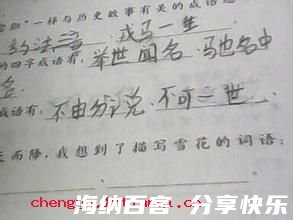 一样与历史故事有关的成语还
约法三 戎马一生
的四字成语有: 举世闻名 马也名中
成语有: 不由分说、不可一世
天而降,我想到了描写雪花的词语:
海纳百客 分享快乐